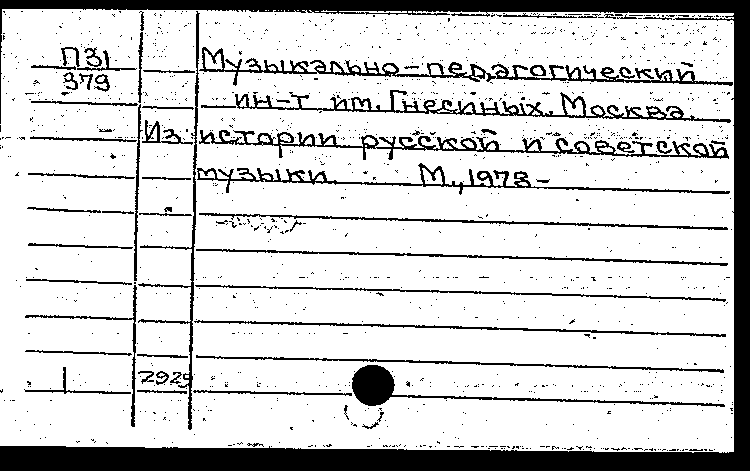 П31 Музыкально-педагогический
379 ин-т им. Гнесиных. Москва.
Из истории русской и советской
музыки. М., 1973-
1 2929